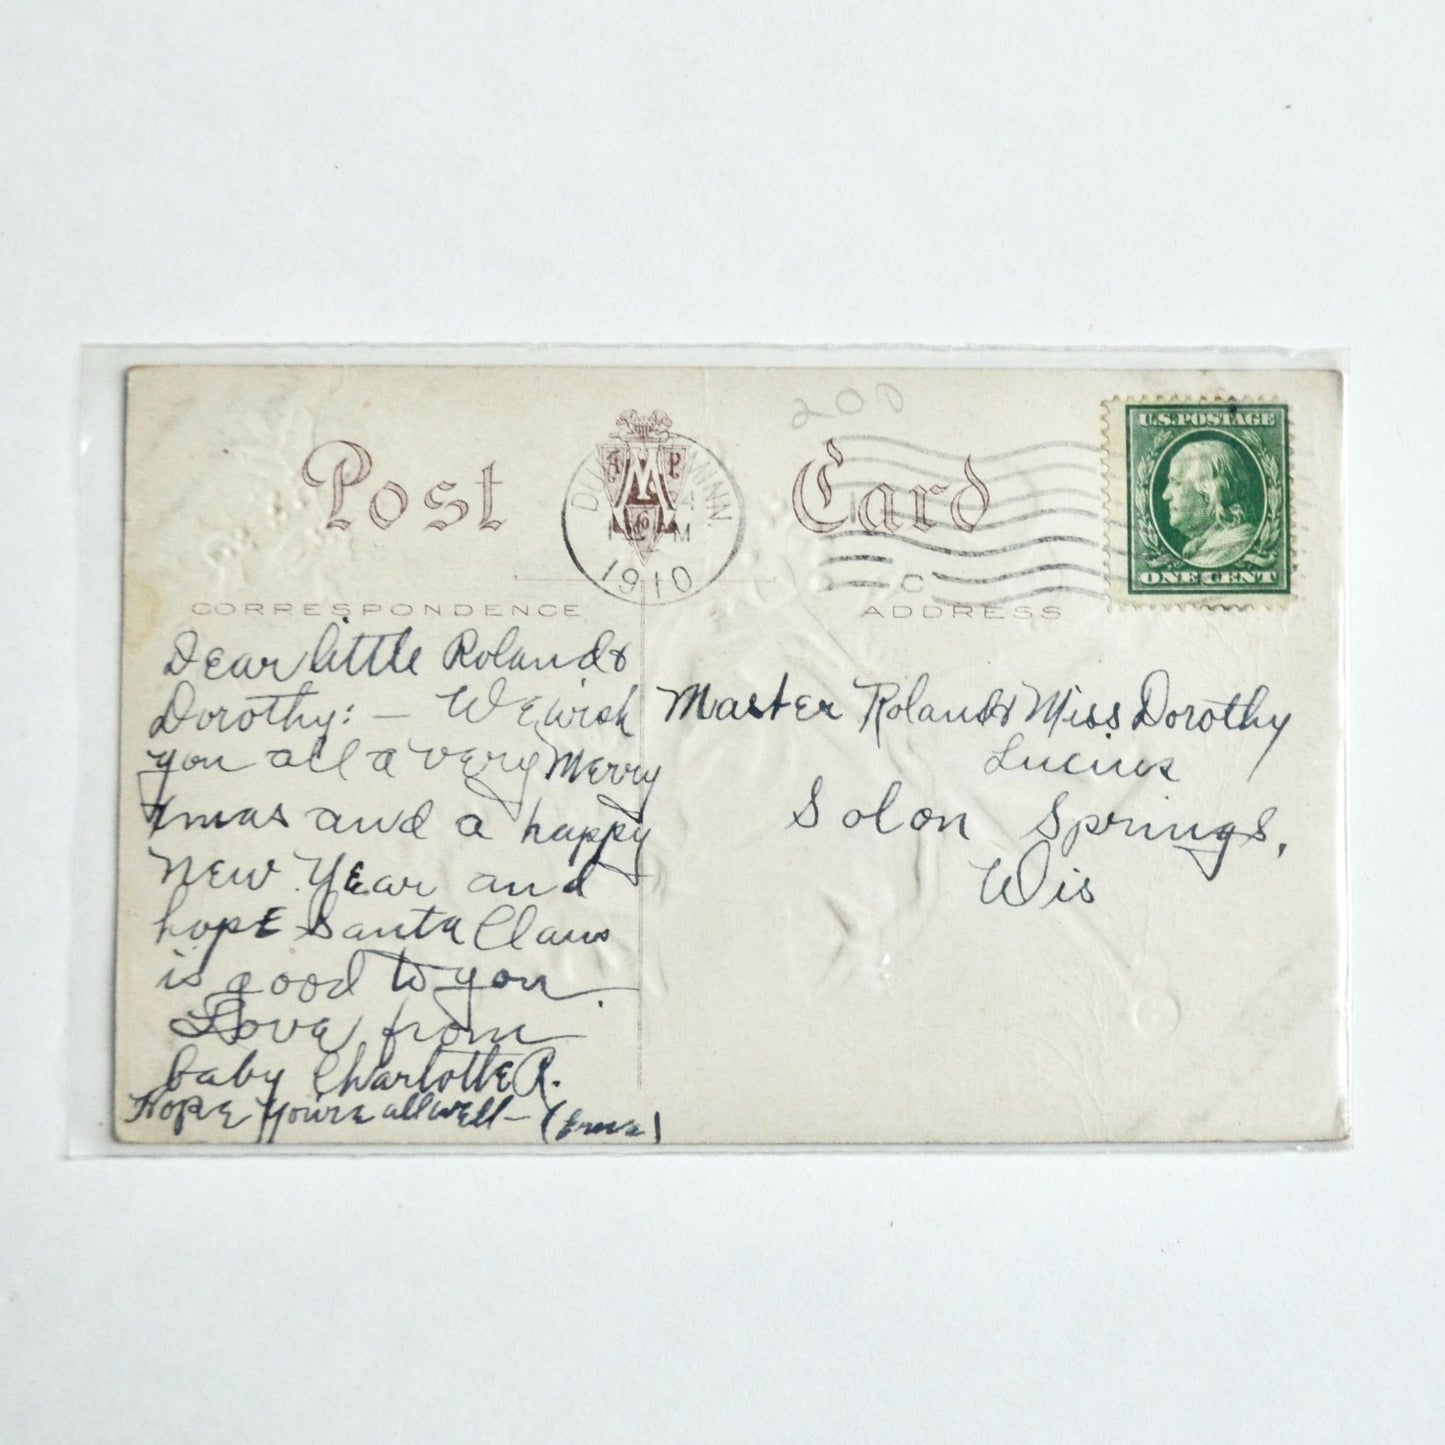 200
Post Card
A M P
Co
MINN.
M
1910
C
U.S. POSTAGE
ONE CENT
CORRESPONDENCE
ADDRESS
Dear little Roland &
Dorothy: — We wish
you all a very Merry
Xmas and a happy
New Year and
hope Santa Claus
is good to you.
Love from
baby Charlotte R.
Hope you're all well — (Erma)
Master Roland & Miss Dorothy
Lucius
Solon Springs,
Wis